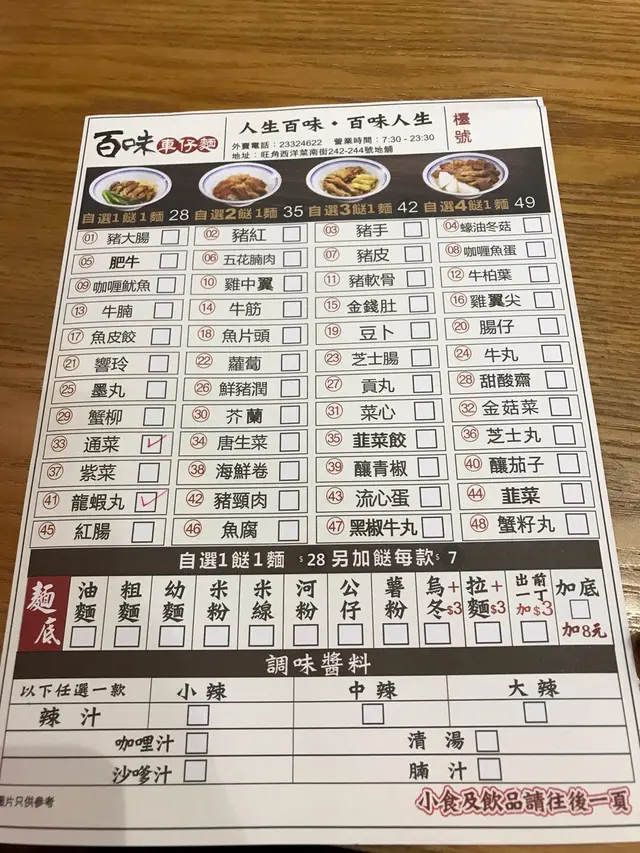 百味車仔麵
人生百味·百味人生
外賣電話:23324622 營業時間:7:30 - 23:30
地址:旺角西洋菜南街242-244號地舖
檯號
自選1餸1麵 28 自選2餸1麵 35 自選3餸1麵 42 自選4餸1麵 49
01 豬大腸 02 豬紅 03 豬手 04 蠔油冬菇
05 肥牛 06 五花腩肉 07 豬皮 08 咖喱魚蛋
09 咖喱魷魚 10 雞中翼 11 豬軟骨 12 牛柏葉
13 牛腩 14 牛筋 15 金錢肚 16 雞翼尖
17 魚皮餃 18 魚片頭 19 豆卜 20 腸仔
21 響玲 22 蘿蔔 23 芝士腸 24 牛丸
25 墨丸 26 鮮豬潤 27 貢丸 28 甜酸齋
29 蟹柳 30 芥蘭 31 菜心 32 金菇菜
33 通菜 34 唐生菜 35 韮菜餃 36 芝士丸
37 紫菜 38 海鮮卷 39 釀青椒 40 釀茄子
41 龍蝦丸 42 豬頸肉 43 流心蛋 44 韮菜
45 紅腸 46 魚腐 47 黑椒牛丸 48 蟹籽丸
自選1餸1麵 $28 另加餸每款 $7
麵底 油麵 粗麵 幼麵 米粉 米線 河粉 公仔 薯粉 烏冬+$3 拉麵+$3 出前一丁加$3 加底加8元
調味醬料
以下任選一款 小辣 中辣 大辣
辣汁
咖哩汁 清湯
沙嗲汁 腩汁
圖片只供參考
小食及飲品請往後一頁